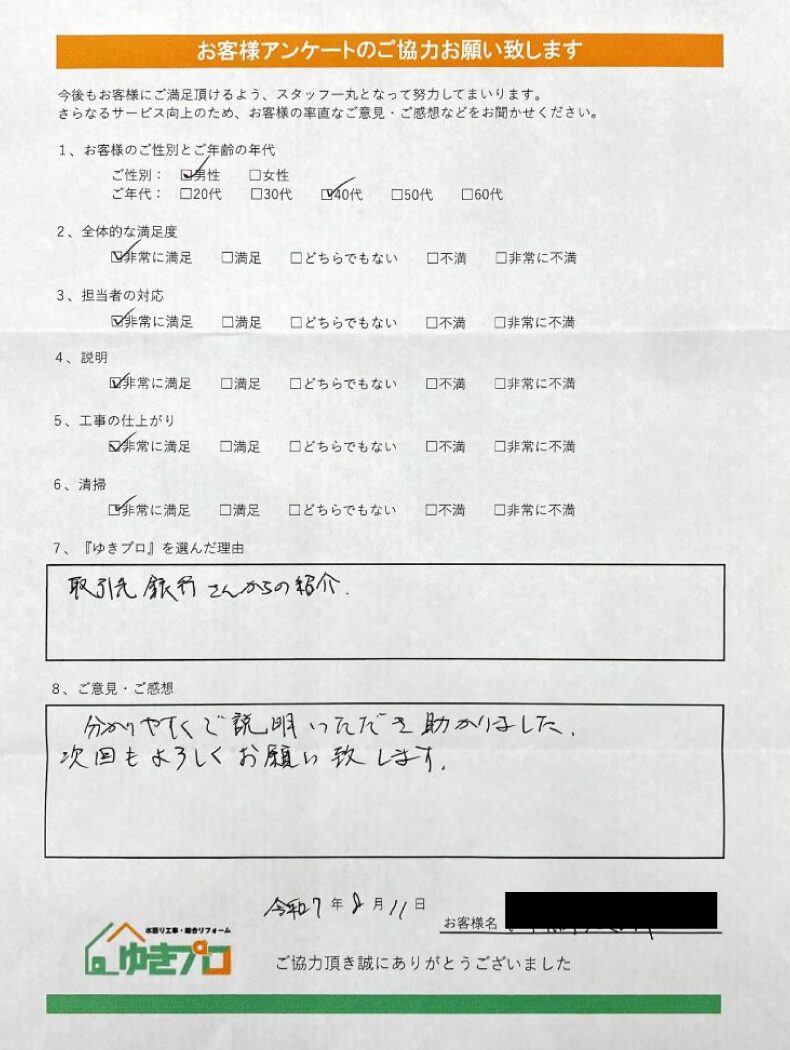 お客様アンケートのご協力お願い致します
今後もお客様にご満足頂けるよう、スタッフ一丸となって努力してまいります。
さらなるサービス向上のため、お客様の率直なご意見・ご感想などをお聞かせください。
1、お客様のご性別とご年齢の年代
ご性別： ☑男性 □女性
ご年代： □20代 □30代 ☑40代 □50代 □60代
2、全体的な満足度
☑非常に満足 □満足 □どちらでもない □不満 □非常に不満
3、担当者の対応
☑非常に満足 □満足 □どちらでもない □不満 □非常に不満
4、説明
☑非常に満足 □満足 □どちらでもない □不満 □非常に不満
5、工事の仕上がり
☑非常に満足 □満足 □どちらでもない □不満 □非常に不満
6、清掃
☑非常に満足 □満足 □どちらでもない □不満 □非常に不満
7、『ゆきプロ』を選んだ理由
取引先銀行さんからの紹介.
8、ご意見・ご感想
分かりやすくご説明いただき助かりました.
次回もよろしくお願い致します.
令和7年8月11日
お客様名
水廻り工事・総合リフォーム
ゆきプロ
ご協力頂き誠にありがとうございました